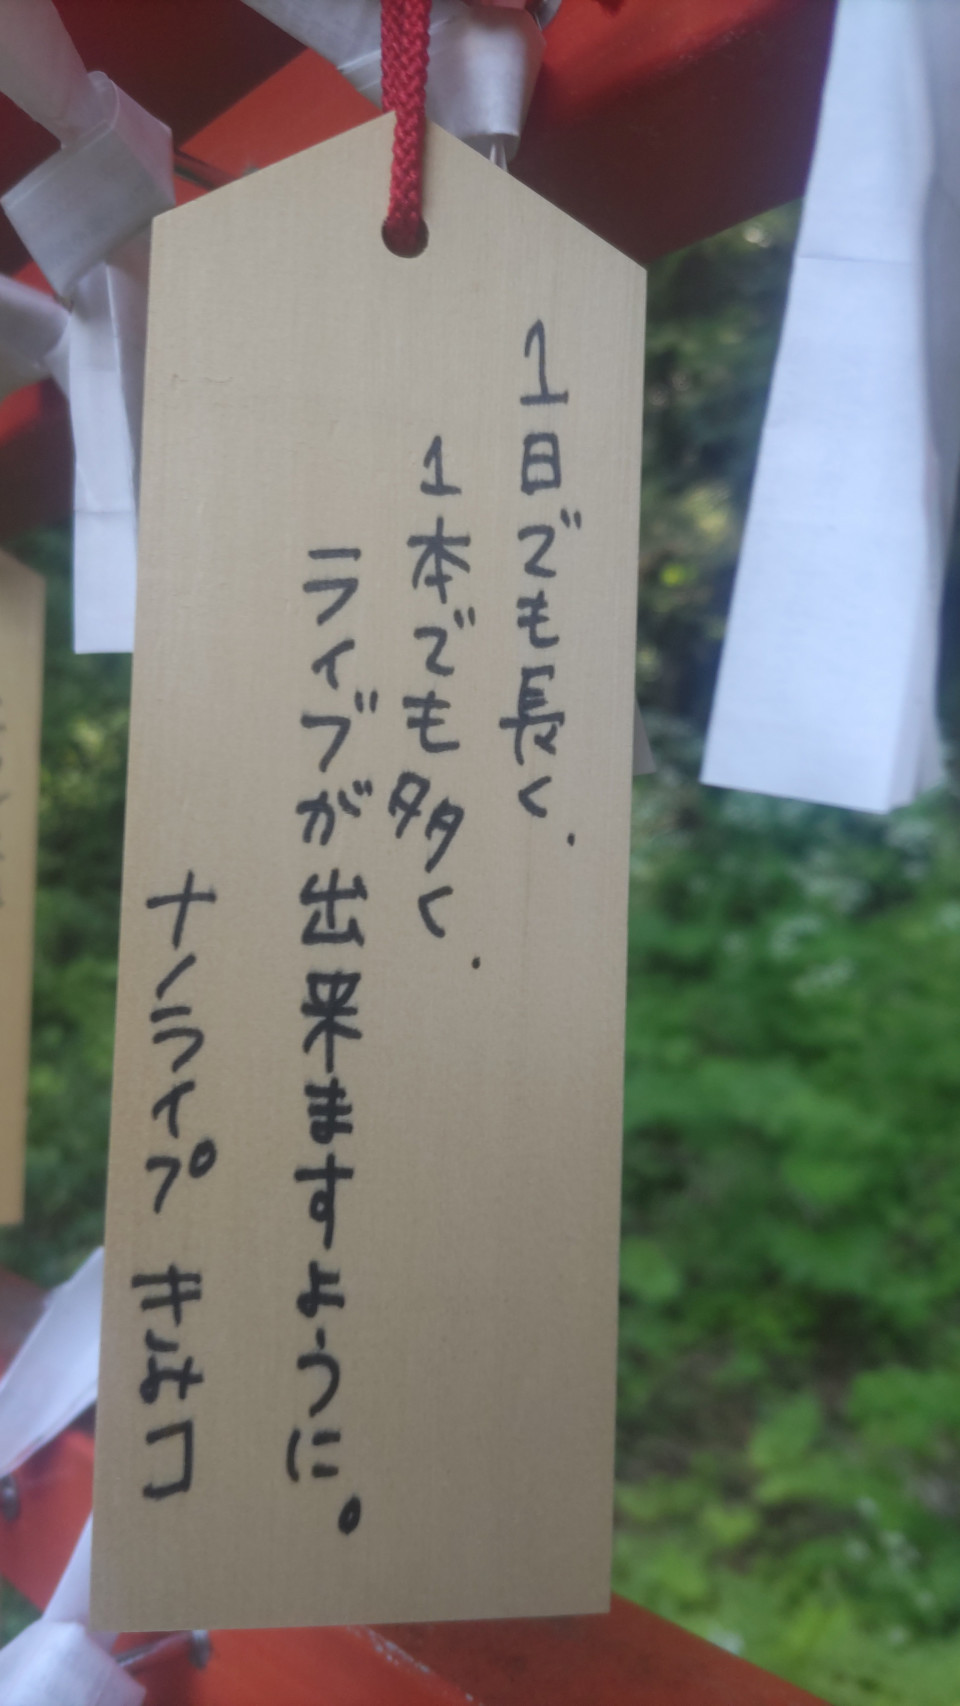 1日でも長く、
1本でも多く、
ライブが出来ますように。
ナノライプ きみコ